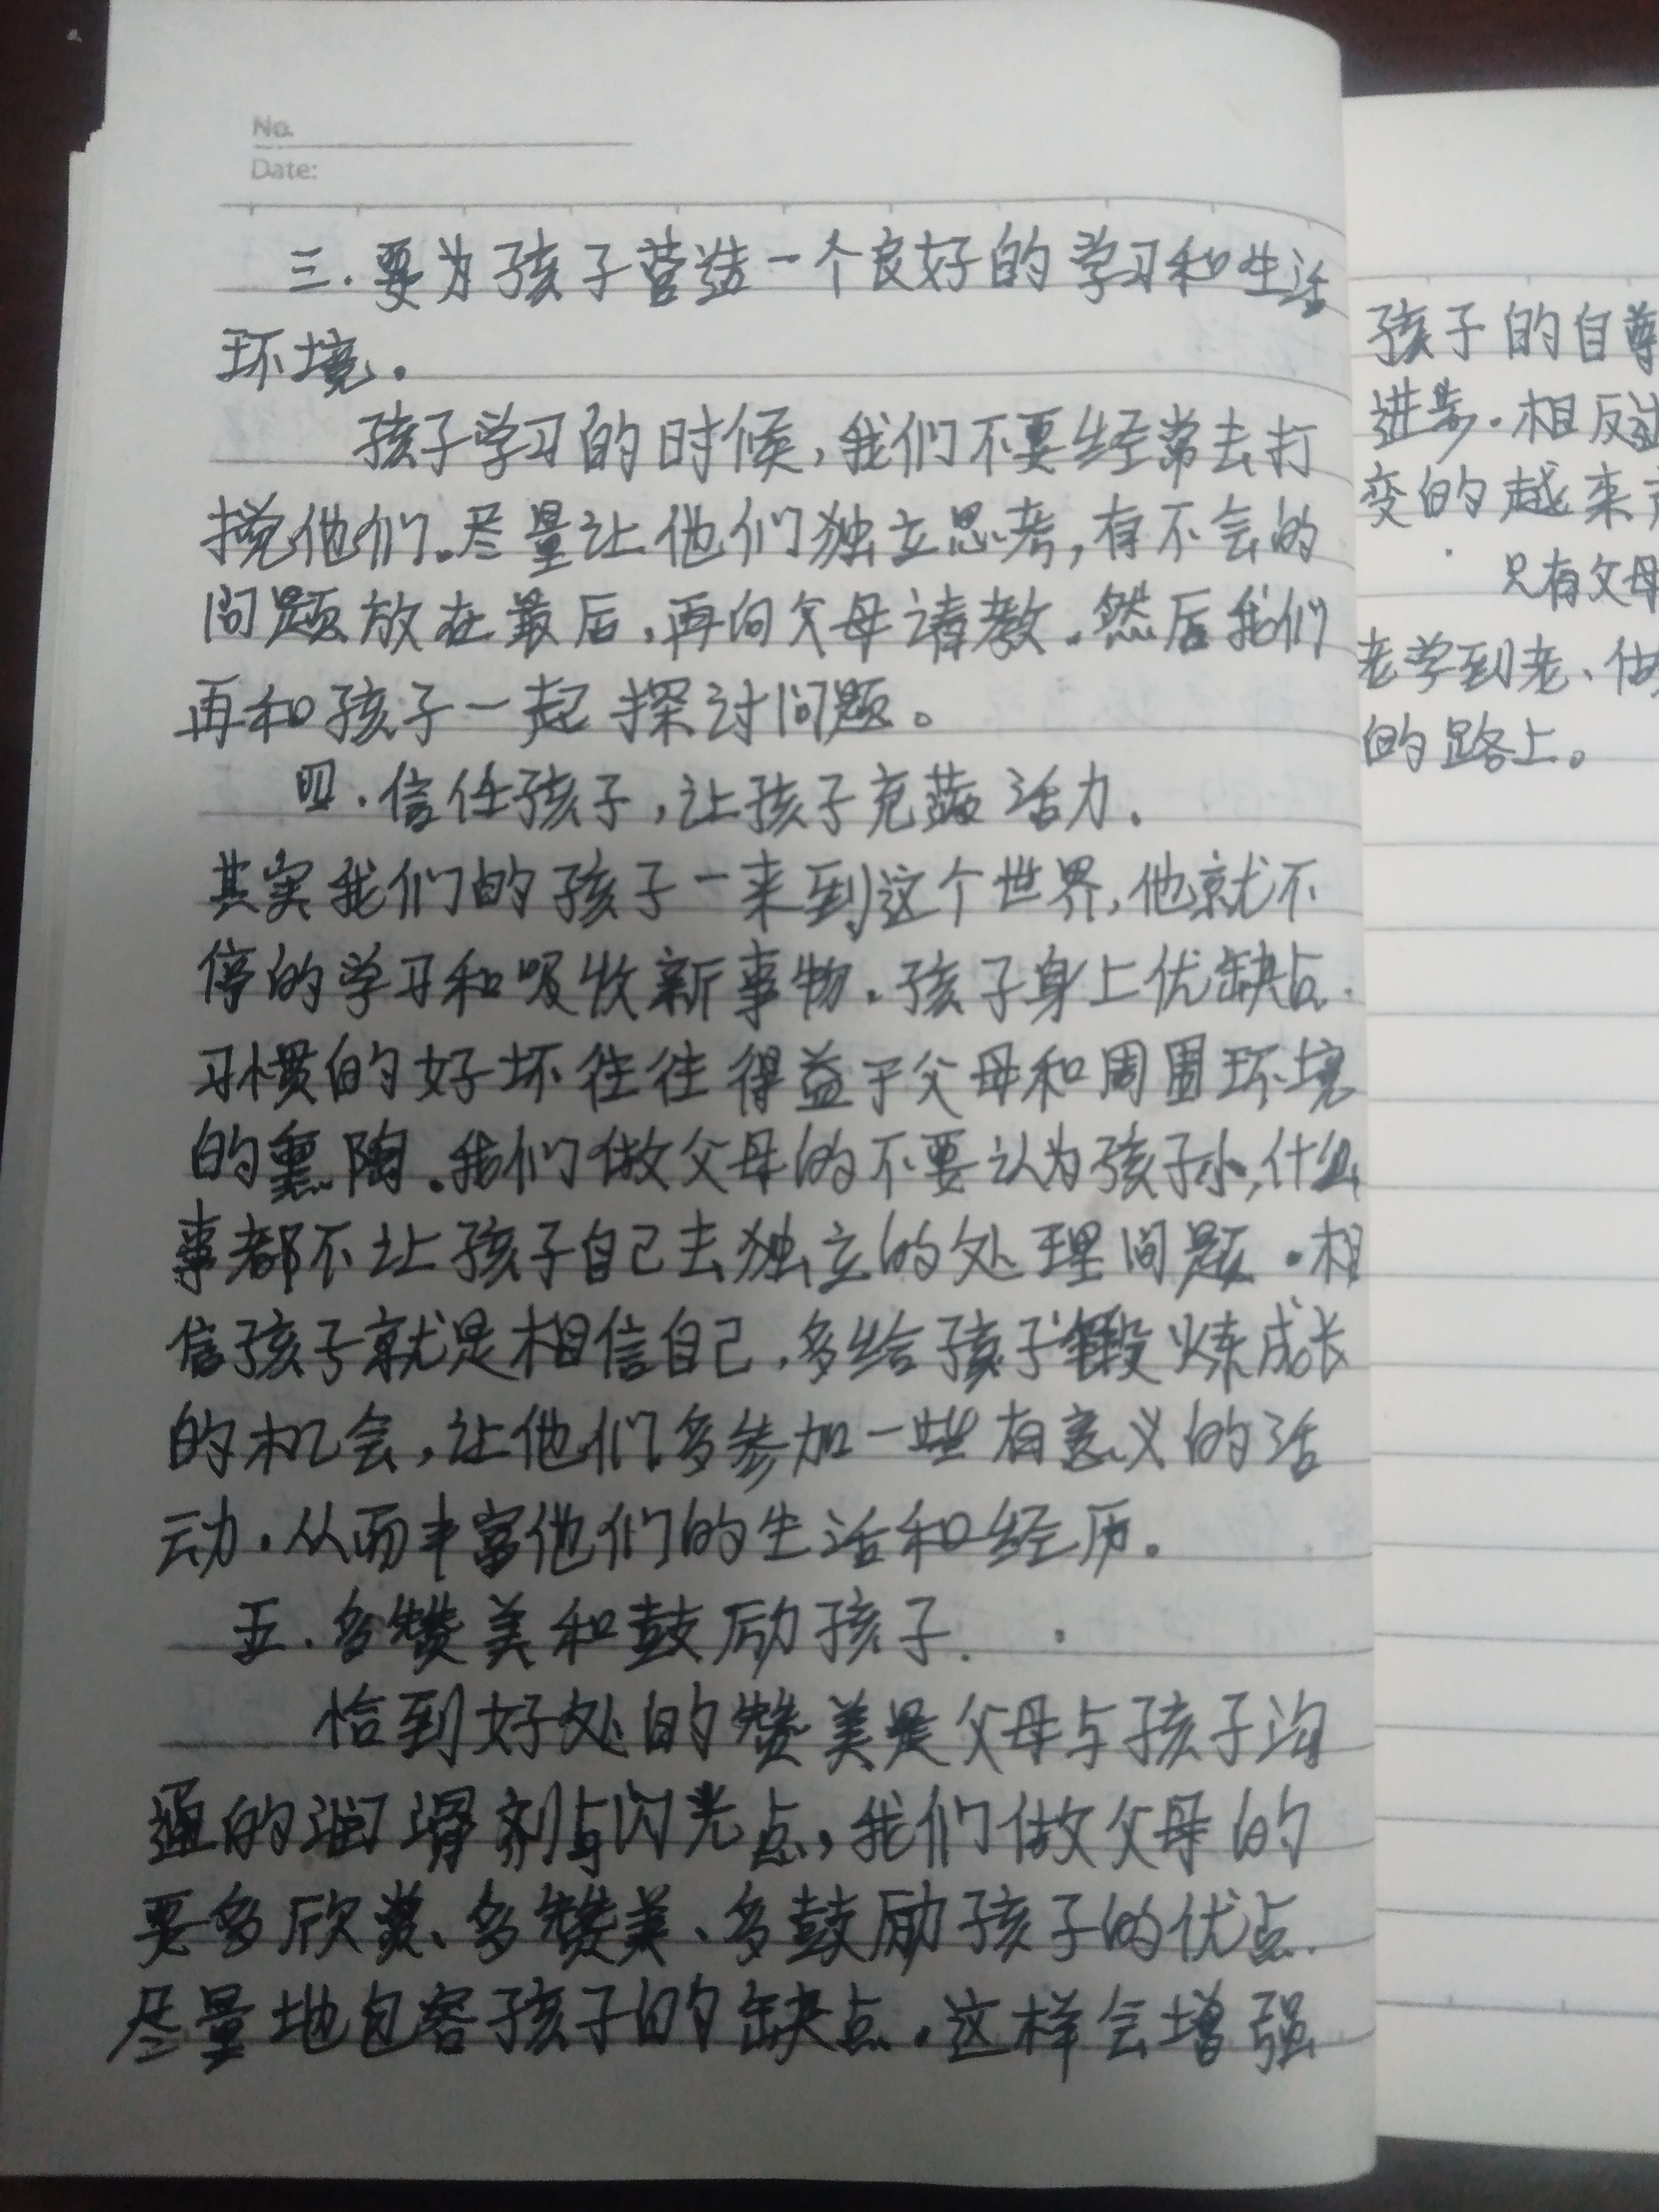 No.
Date:
三.要为孩子营造一个良好的学习和生活
环境.
孩子学习的时候,我们不要经常去打
搅他们。尽量让他们独立思考,有不会的
问题放在最后,再向父母请教.然后我们
再和孩子一起探讨问题。
四.信任孩子,让孩子充满活力.
其实我们的孩子一来到这个世界,他就不
停的学习和吸收新事物.孩子身上优缺点.
习惯的好坏往往得益于父母和周围环境
的熏陶.我们做父母的不要认为孩子小,什么
事都不让孩子自己去独立的处理问题.相
信孩子就是相信自己,多给孩子锻炼成长
的机会,让他们多参加一些有意义的活
动.从而丰富他们的生活和经历.
五.多赞美和鼓励孩子.
恰到好处的赞美是父母与孩子沟
通的润滑剂与闪光点,我们做父母的
要多欣赏、多赞美、多鼓励孩子的优点.
尽量地包容孩子的缺点.这样会增强
孩子的自尊
进步.相反
变的越来
只有父母
老学到老、做
的路上。